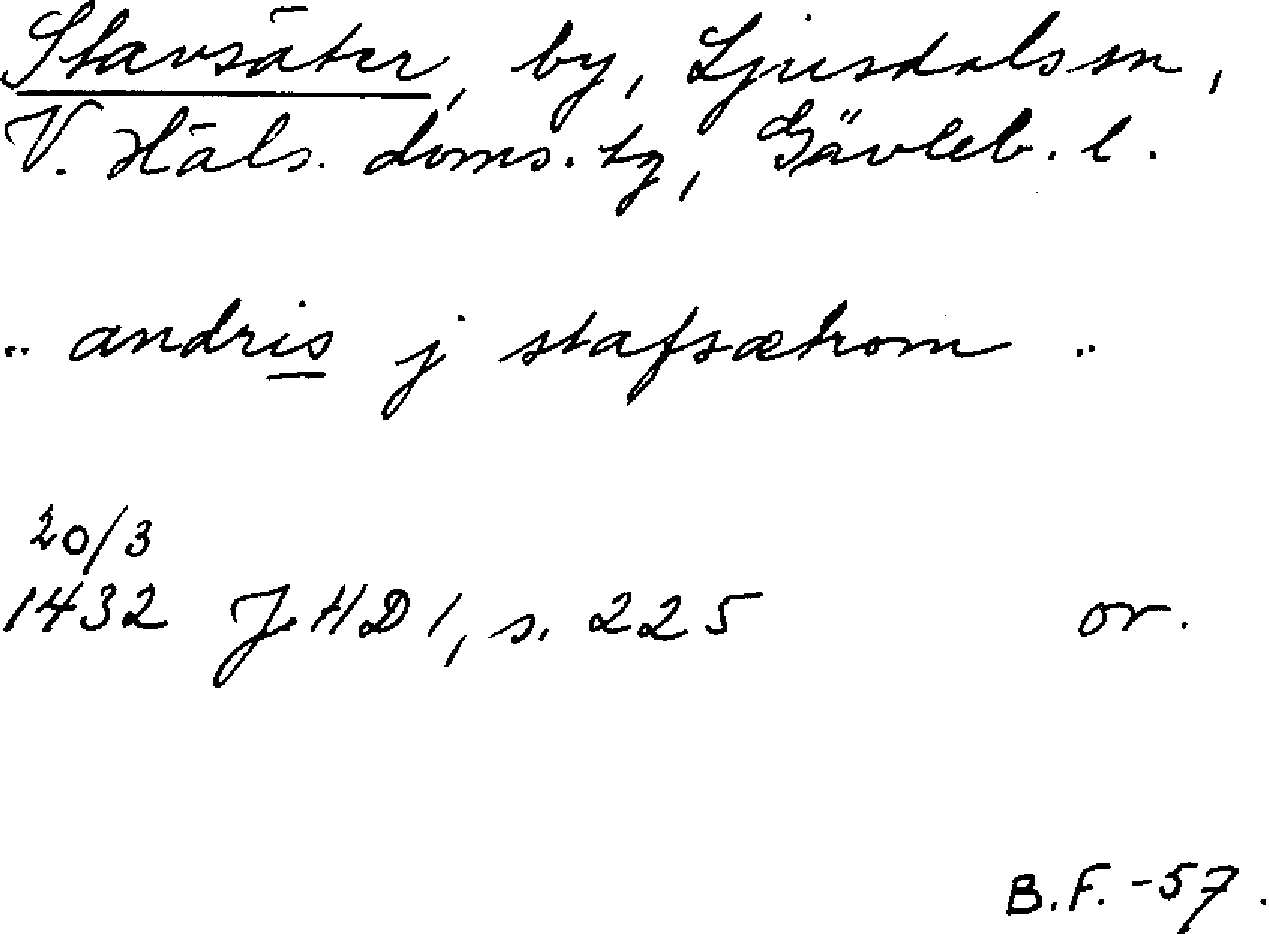 Stavsäter, by, Ljusdals sn,
V. Häls. doms. tg, Gävleb. l.
.. andris j stafsætrom ..
20/3
1432 JHD 1, s. 225 or.
B.F. -57.